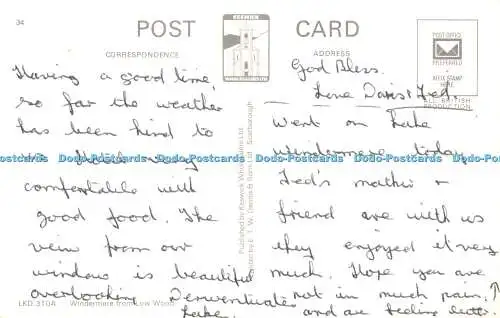 34
POST CARD
KESWICK
CORRESPONDENCE
ADDRESS
POST OFFICE
PREFERRED
AFFIX STAMP
HERE
ALL BRITISH
PRODUCTION
Having a good time,
so far the weather
has been kind to
us. Hotel very
comfortable with
good food. The
view from our
window is beautiful
overlooking Derwentwater
Lake.
God Bless.
Love Doris & Ted.
Went on Lake
windermere today,
Ted's mother &
friend are with us
they enjoyed it very
much. Hope you are
not in much pain,
and are feeling better.
Dodo-Postcards Dodo-Postcards Dodo-Postcards Dodo-Postcards Dodo-Postcards
LKD 310A Windermere from Low Wood